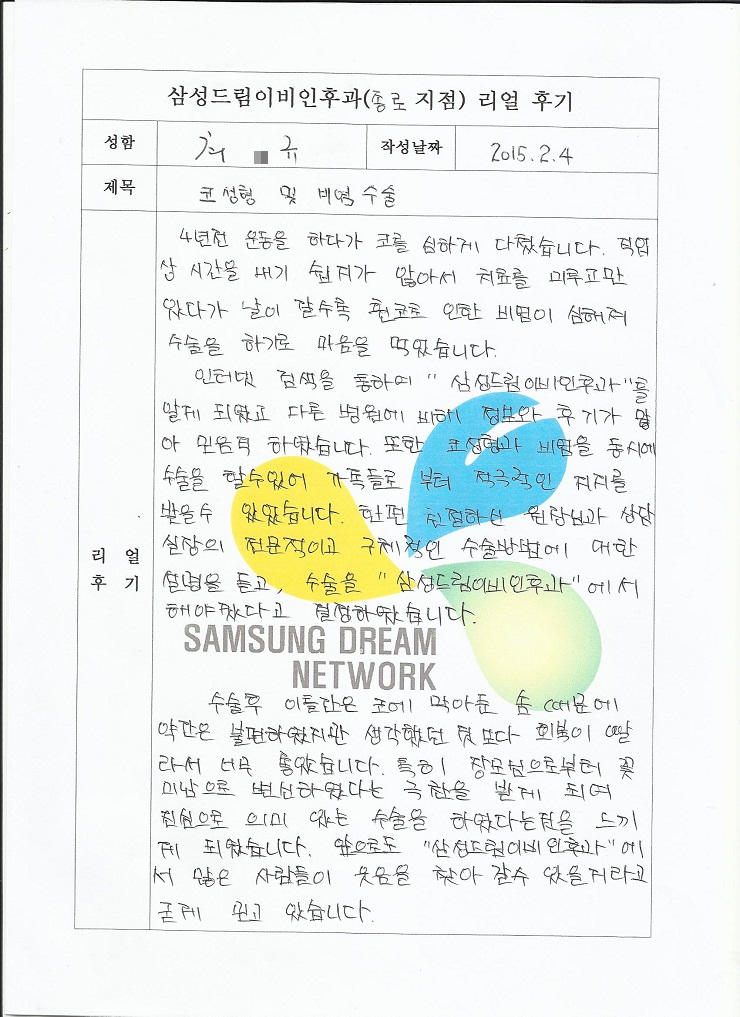 삼성드림이비인후과(종로 지점) 리얼 후기
성함 최 규 작성날짜 2015.2.4
제목 코성형 및 비염수술
4년전 운동을 하다가 코를 심하게 다쳤습니다. 직업
상 시간을 내기 쉽지가 않아서 치료를 미루고만
있다가 날이 갈수록 휜코로 인한 비염이 심해져
수술을 하기로 마음을 먹었습니다.
인터넷 검색을 통하여 "삼성드림이비인후과"를
알게 되었고 다른 병원에 비해 정보와 후기가 많
아 믿음직 하였습니다. 또한 코성형과 비염을 동시에
수술을 할수있어 가족들로 부터 적극적인 지지를
받을수 있었습니다. 한편 친절하신 원장님과 상담
실장의 전문적이고 구체적인 수술방법에 대한
설명을 듣고, 수술을 "삼성드림이비인후과"에서
해야겠다고 결정하였습니다.
리얼
후기
SAMSUNG DREAM
NETWORK
수술후 이틀간은 코에 막아둔 솜 때문에
약간은 불편하였지만 생각했던 것 보다 회복이 빨
라서 너무 좋았습니다. 특히 장모님으로부터 꽃
미남으로 변신하였다는 극찬을 받게 되어
진심으로 의미 있는 수술을 하였다는점을 느끼
게 되었습니다. 앞으로도 "삼성드림이비인후과"에
서 많은 사람들이 웃음을 찾아 갈수 있을거라고
굳게 믿고 있습니다.